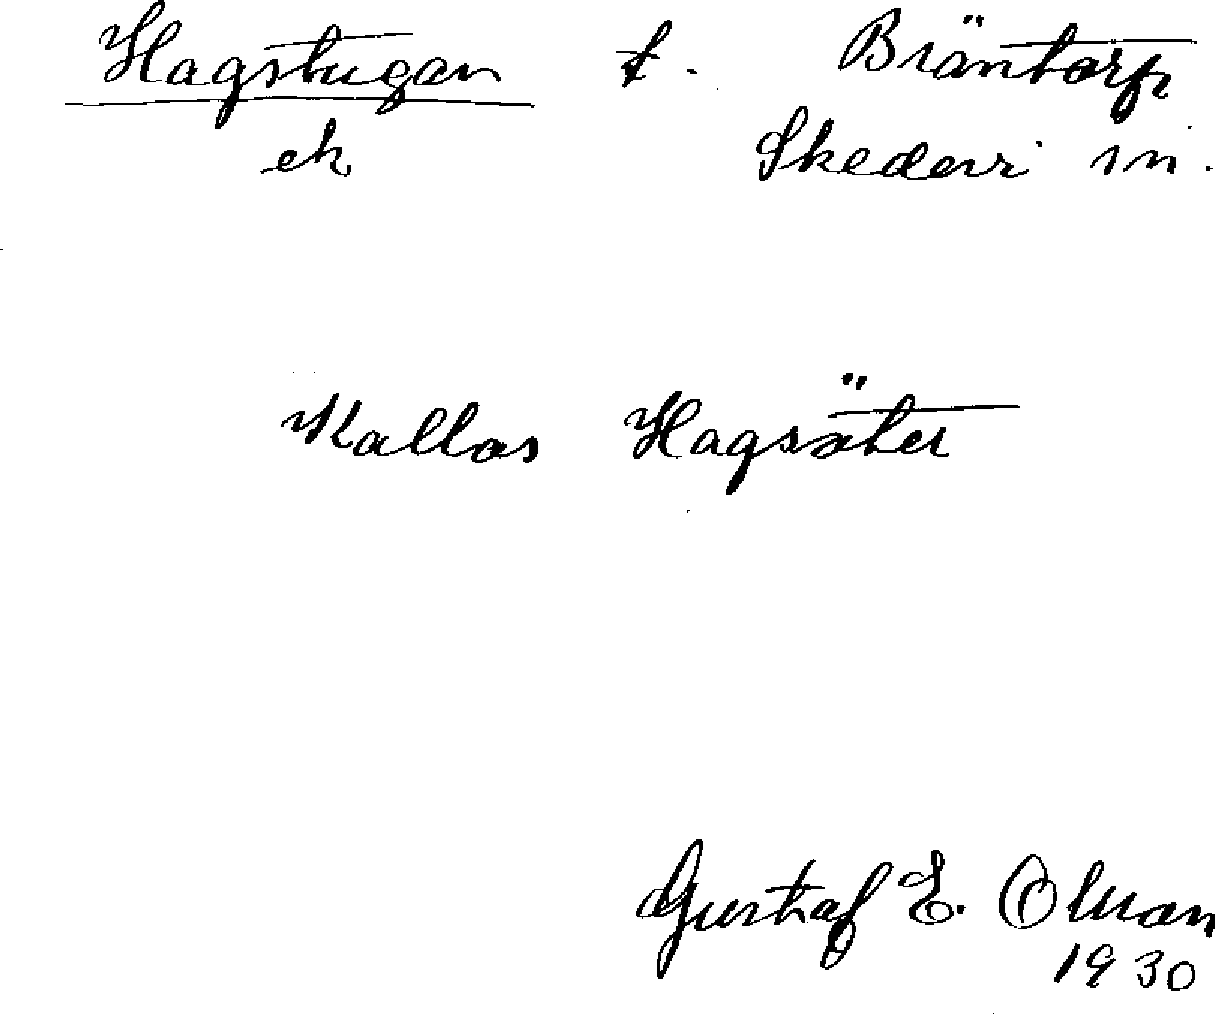 Hagstugan t. Bräntorp
ek Skedevi sn.
Kallas Hagsäter
Gustaf E. Olsson
1930